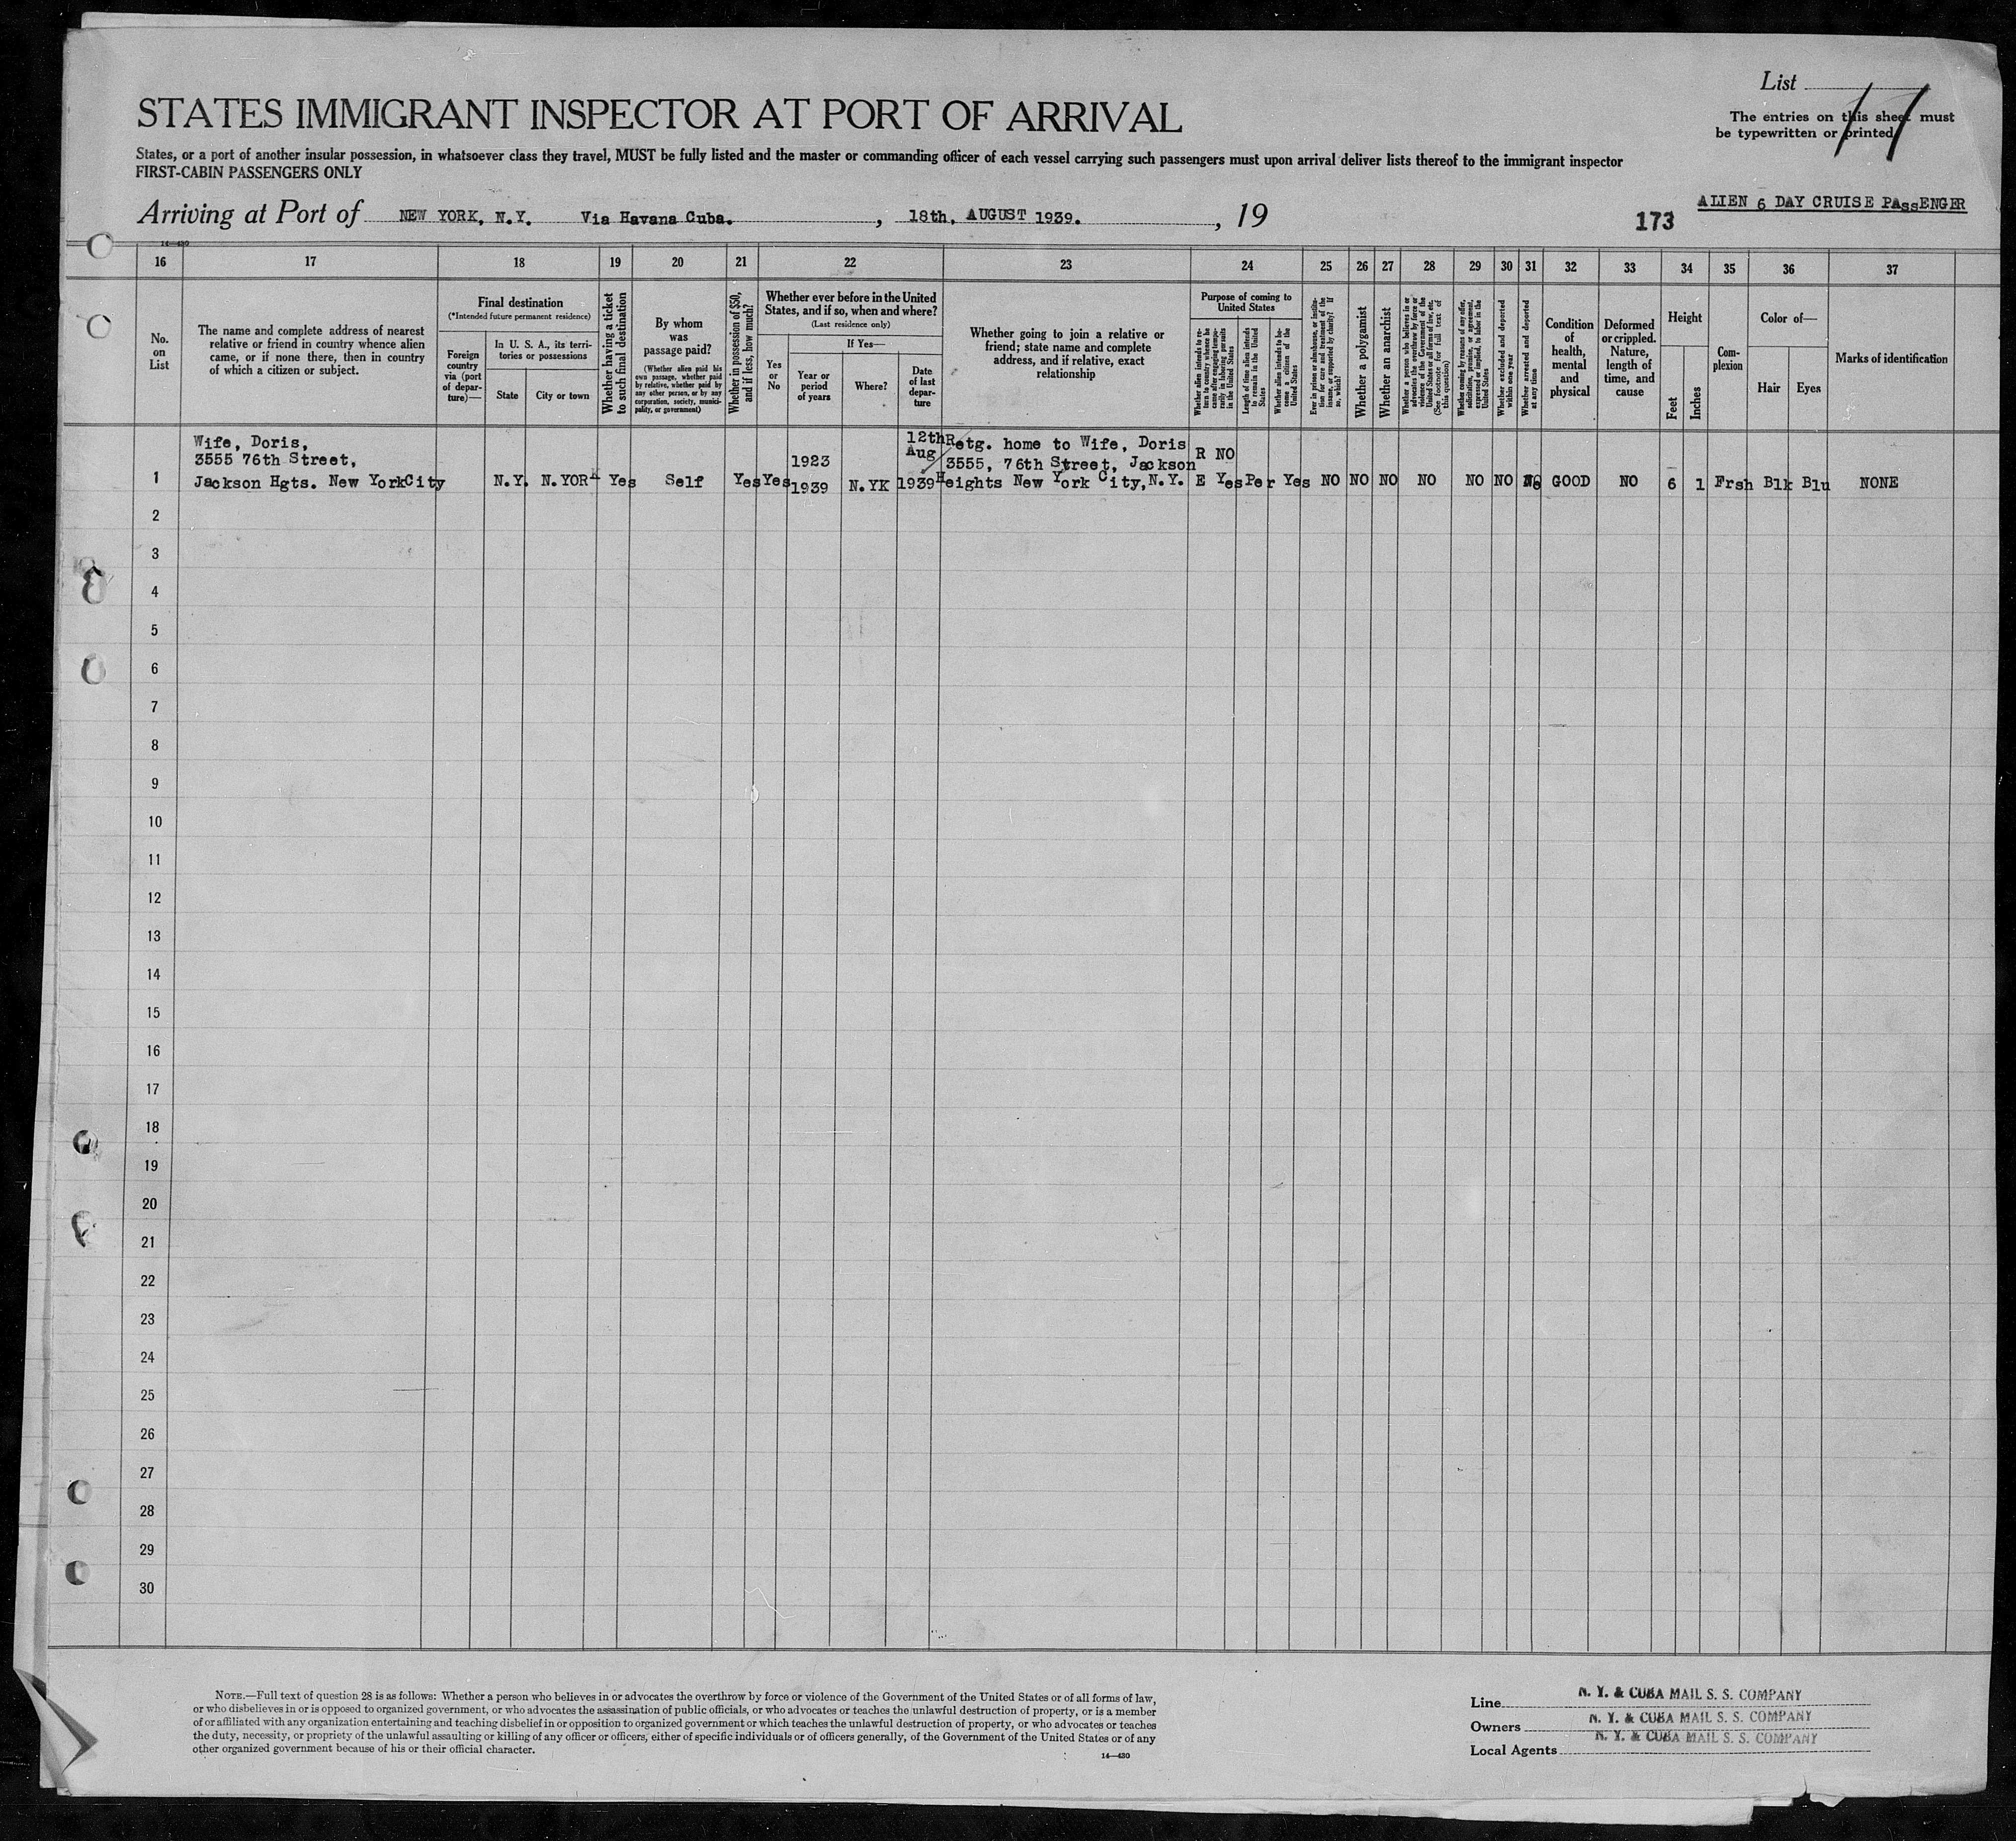 List
17
The entries on this sheet must
be typewritten or printed
STATES IMMIGRANT INSPECTOR AT PORT OF ARRIVAL
States, or a port of another insular possession, in whatsoever class they travel, MUST be fully listed and the master or commanding officer of each vessel carrying such passengers must upon arrival deliver lists thereof to the immigrant inspector
FIRST-CABIN PASSENGERS ONLY
ALIEN 6 DAY CRUISE PAssENGER
Arriving at Port of NEW YORK, N.Y. Via Havana Cuba. , 18th, AUGUST 1939. , 19
173
14—430
16 17 18 19 20 21 22 23 24 25 26 27 28 29 30 31 32 33 34 35 36 37
No.
on
List
The name and complete address of nearest
relative or friend in country whence alien
came, or if none there, then in country
of which a citizen or subject.
Final destination
(*Intended future permanent residence)
Foreign
country
via (port
of depar-
ture)—
In U. S. A., its terri-
tories or possessions
State
City or town
Whether having a ticket
to such final destination
By whom
was
passage paid?
(Whether alien paid his
own passage, whether paid
by relative, whether paid by
any other person, or by any
corporation, society, munici-
pality, or government)
Whether in possession of $50,
and if less, how much?
Whether ever before in the United
States, and if so, when and where?
(Last residence only)
Yes
or
No
If Yes—
Year or
period
of years
Where?
Date
of last
depar-
ture
Whether going to join a relative or
friend; state name and complete
address, and if relative, exact
relationship
Purpose of coming to
United States
Whether alien intends to re-
turn to country whence he
came after engaging tempo-
rarily in laboring pursuits
in the United States
Length of time alien intends
to remain in the United
States
Whether alien intends to be-
come a citizen of the
United States
Ever in prison or almshouse, or institu-
tion for care and treatment of the
insane, or supported by charity? If
so, which?
Whether a polygamist
Whether an anarchist
Whether a person who believes in or
advocates the overthrow by force or
violence of the Government of the
United States or all forms of law, etc.
(See footnote for full text of
this question)
Whether coming by reasons of any offer,
solicitation, promise, or agreement,
expressed or implied, to labor in the
United States
Whether excluded and deported
within one year
Whether arrested and deported
at any time
Condition
of
health,
mental
and
physical
Deformed
or crippled.
Nature,
length of
time, and
cause
Height
Feet
Inches
Com-
plexion
Color of—
Hair
Eyes
Marks of identification
Wife, Doris, 12th Retg. home to Wife, Doris
3555 76th Street, 1923 Aug 3555, 76th Street, Jackson R NO
1 Jackson Hgts. New YorkCity N.Y. N.YORK Yes Self Yes Yes 1939 N.YK 1939 Heights New York City,N.Y. E Yes Per Yes NO NO NO NO NO NO No GOOD NO 6 1 Frsh Blk Blu NONE
2
3
4
5
6
7
8
9
10
11
12
13
14
15
16
17
18
19
20
21
22
23
24
25
26
27
28
29
30
NOTE.—Full text of question 28 is as follows: Whether a person who believes in or advocates the overthrow by force or violence of the Government of the United States or of all forms of law,
or who disbelieves in or is opposed to organized government, or who advocates the assassination of public officials, or who advocates or teaches the unlawful destruction of property, or is a member
of or affiliated with any organization entertaining and teaching disbelief in or opposition to organized government or which teaches the unlawful destruction of property, or who advocates or teaches
the duty, necessity, or propriety of the unlawful assaulting or killing of any officer or officers, either of specific individuals or of officers generally, of the Government of the United States or of any
other organized government because of his or their official character.
14—430
Line N. Y. & CUBA MAIL S. S. COMPANY
Owners N. Y. & CUBA MAIL S. S. COMPANY
Local Agents N. Y. & CUBA MAIL S. S. COMPANY